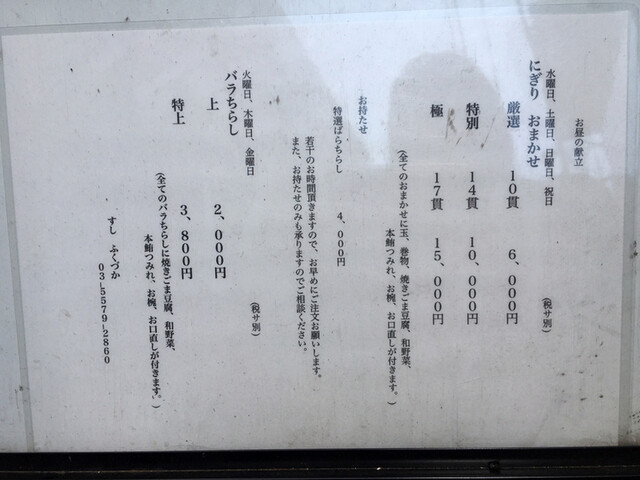 お昼の献立
水曜日、土曜日、日曜日、祝日
にぎり おまかせ (税サ別)
厳選 10貫 6,000円
特別 14貫 10,000円
極 17貫 15,000円
(全てのおまかせに玉、巻物、焼きごま豆腐、和野菜、
本鮪つみれ、お椀、お口直しが付きます。)
お持たせ
特選ばらちらし 4,000円
若干のお時間頂きますので、お早めにご注文お願いします。
また、お持たせのみも承りますのでご相談ください。
火曜日、木曜日、金曜日 (税サ別)
バラちらし
上 2,000円
特上 3,800円
(全てのバラちらしに焼きごま豆腐、和野菜、
本鮪つみれ、お椀、お口直しが付きます。)
すし ふくづか
03-5579-2860